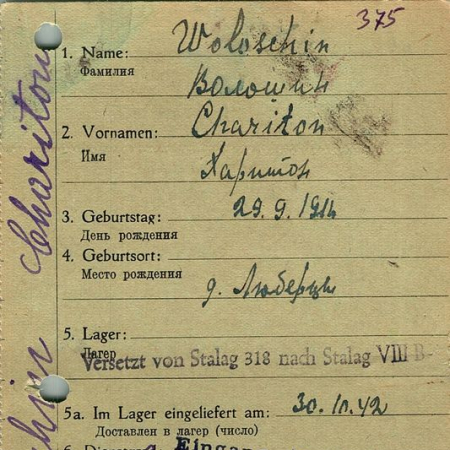 375
1. Name: Woloschin
Фамилия
Волошин
2. Vornamen: Chariton
Имя
Харитон
3. Geburtstag: 29. 9. 1914
День рождения
4. Geburtsort:
Место рождения
д. Люберцы
5. Lager:
Лагер
Versetzt von Stalag 318 nach Stalag VIII B
5a. Im Lager eingeliefert am: 30. 10. 42
Доставлен в лагер (число)
Chariton